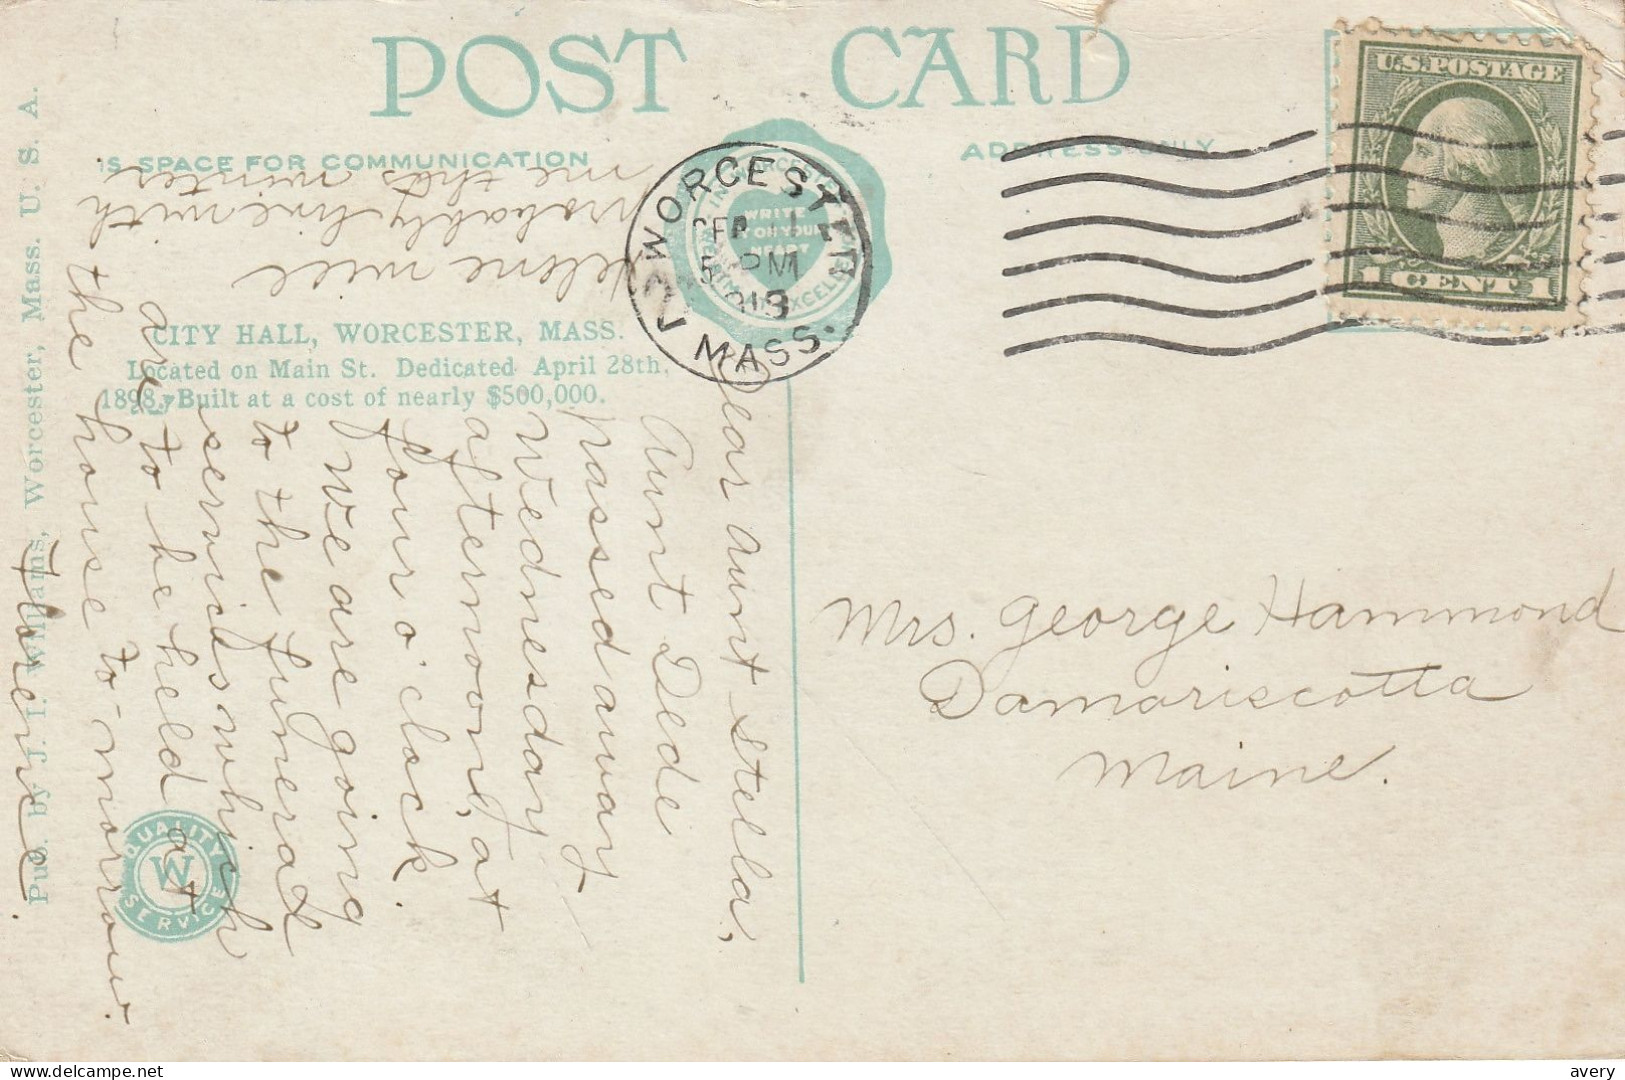 POST CARD
IS SPACE FOR COMMUNICATION
ADDRESS ONLY
U.S. POSTAGE
1 CENT 1
WORCESTER
SEP
PM
MASS.
WRITE
IT ON YOUR
HEART
CITY HALL, WORCESTER, MASS.
Located on Main St. Dedicated April 28th,
1898. Built at a cost of nearly $500,000.
Pub. by J. I. Williams, Worcester, Mass. U. S. A.
QUALITY
W
SERVICE
Dear Aunt Stella,
Aunt Dede
passed away
Wednesday
afternoon, at
four o'clock.
We are going
to the funeral
services which
are to be held at
the house to-morrow.
Florence.
Helene will
probably live with
me this winter
Mrs. George Hammond
Damariscotta
Maine.